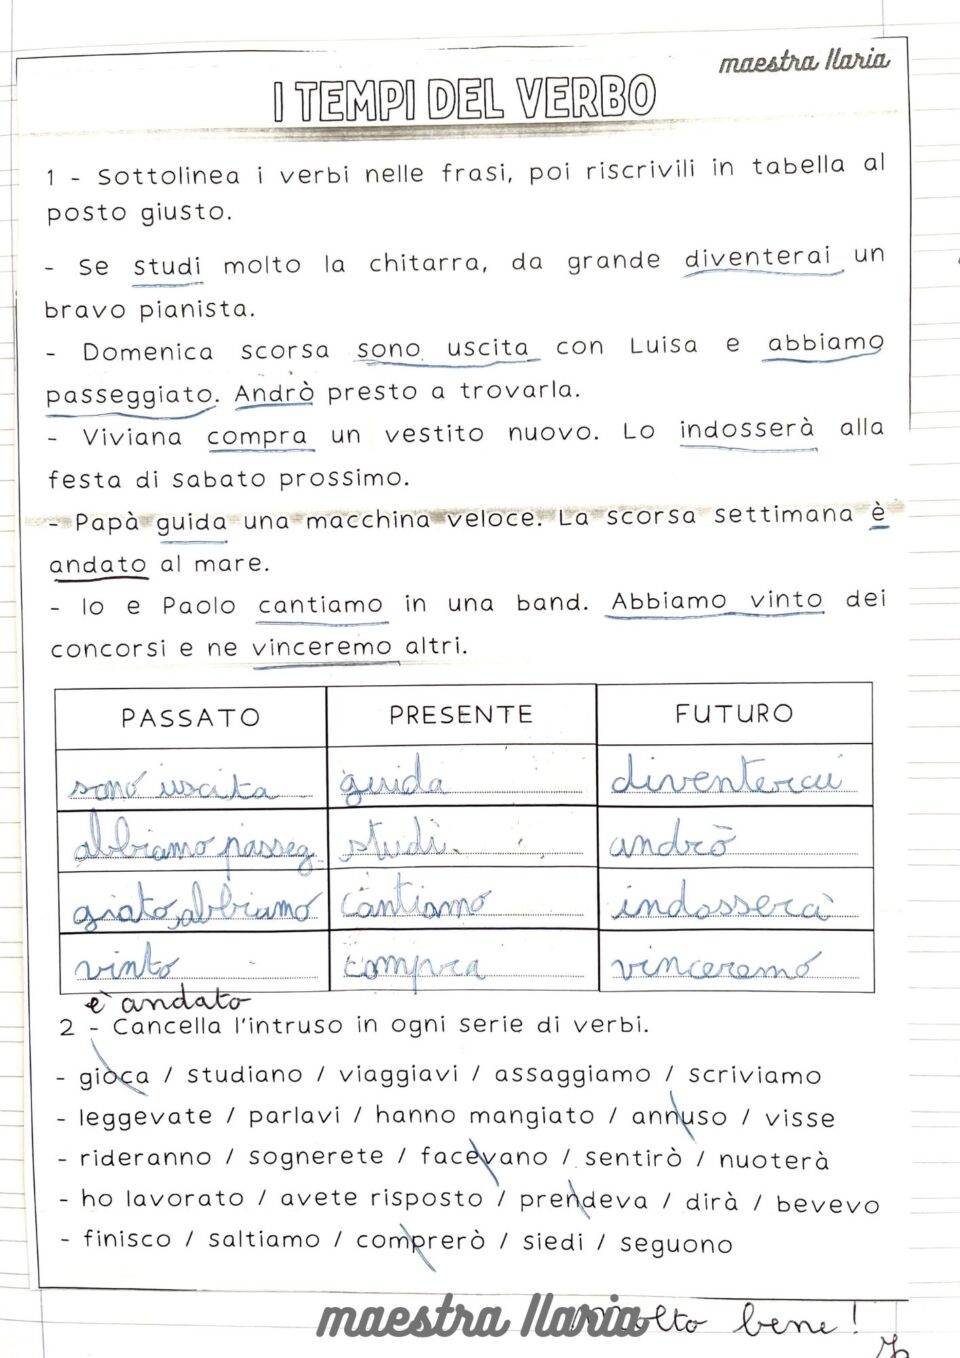 maestra Ilaria
I TEMPI DEL VERBO
1 - Sottolinea i verbi nelle frasi, poi riscrivili in tabella al
posto giusto.
- Se studi molto la chitarra, da grande diventerai un
bravo pianista.
- Domenica scorsa sono uscita con Luisa e abbiamo
passeggiato. Andrò presto a trovarla.
- Viviana compra un vestito nuovo. Lo indosserà alla
festa di sabato prossimo.
- Papà guida una macchina veloce. La scorsa settimana è
andato al mare.
- Io e Paolo cantiamo in una band. Abbiamo vinto dei
concorsi e ne vinceremo altri.
PASSATO PRESENTE FUTURO
sono uscita guida diventerai
abbiamo passeg studi andrò
giato, abbiamo cantiamo indosserà
vinto compra vinceremo
è andato
2 - Cancella l'intruso in ogni serie di verbi.
- gioca / studiano / viaggiavi / assaggiamo / scriviamo
- leggevate / parlavi / hanno mangiato / annuso / visse
- rideranno / sognerete / facevano / sentirò / nuoterà
- ho lavorato / avete risposto / prendeva / dirà / bevevo
- finisco / saltiamo / comprerò / siedi / seguono
maestra Ilaria Molto bene!